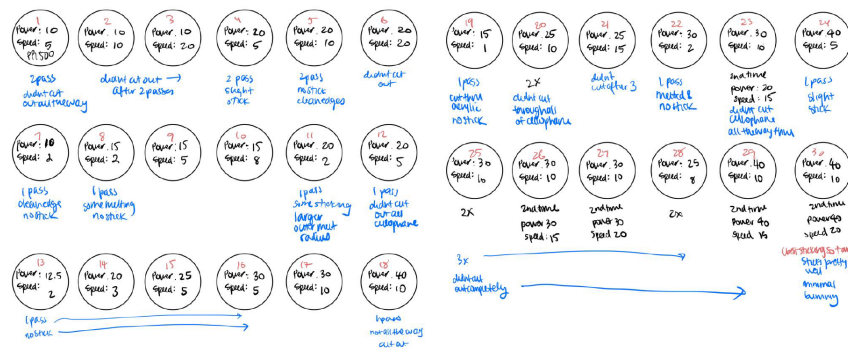 1
Power: 10
Speed: 5
PPI 500
2 pass
didnt cut
out all the way
2
Power: 10
Speed: 10
3
Power: 10
Speed: 20
didnt cut out →
after 2 passes
4
Power: 20
Speed: 5
2 pass
slight
stick
5
Power: 20
Speed: 10
2 pass
no stick
clean edges
6
Power: 20
Speed: 20
didnt cut
out
7
Power: 10
Speed: 2
1 pass
clean edge
no stick
8
Power: 15
Speed: 2
1 pass
some melting
no stick
9
Power: 15
Speed: 5
10
Power: 15
Speed: 8
11
Power: 20
Speed: 2
1 pass
some sticking
larger
outer melt
radius
12
Power: 20
Speed: 5
1 pass
didnt cut
out all
cellophane
13
Power: 12.5
Speed: 2
14
Power: 20
Speed: 3
15
Power: 25
Speed: 5
16
Power: 30
Speed: 5
1 pass
no stick
17
Power: 30
Speed: 10
18
Power: 40
Speed: 10
not all the way
cut out
19
Power: 15
Speed: 1
1 pass
cut thru
acrylic
no stick
20
Power: 25
Speed: 10
2x
didnt cut
through all
of cellophane
21
Power: 25
Speed: 15
didnt
cut after 3
22
Power: 30
Speed: 2
1 pass
melted &
no stick
23
Power: 30
Speed: 10
2nd time
power: 20
Speed: 15
didnt cut
cellophane
all the way thru
24
Power: 40
Speed: 5
1 pass
slight
stick
25
Power: 30
Speed: 10
2x
26
Power: 30
Speed: 10
2nd time
power 30
Speed: 15
27
Power: 30
Speed: 10
2nd time
power 30
Speed 20
28
Power: 25
Speed: 8
2x
29
Power: 40
Speed: 10
2nd time
Power 40
Speed 15
30
Power: 40
Speed: 10
2nd time
Power 40
Speed 20
3x
didnt cut
out completely
sticking so
sticks pretty
well
minimal
burning